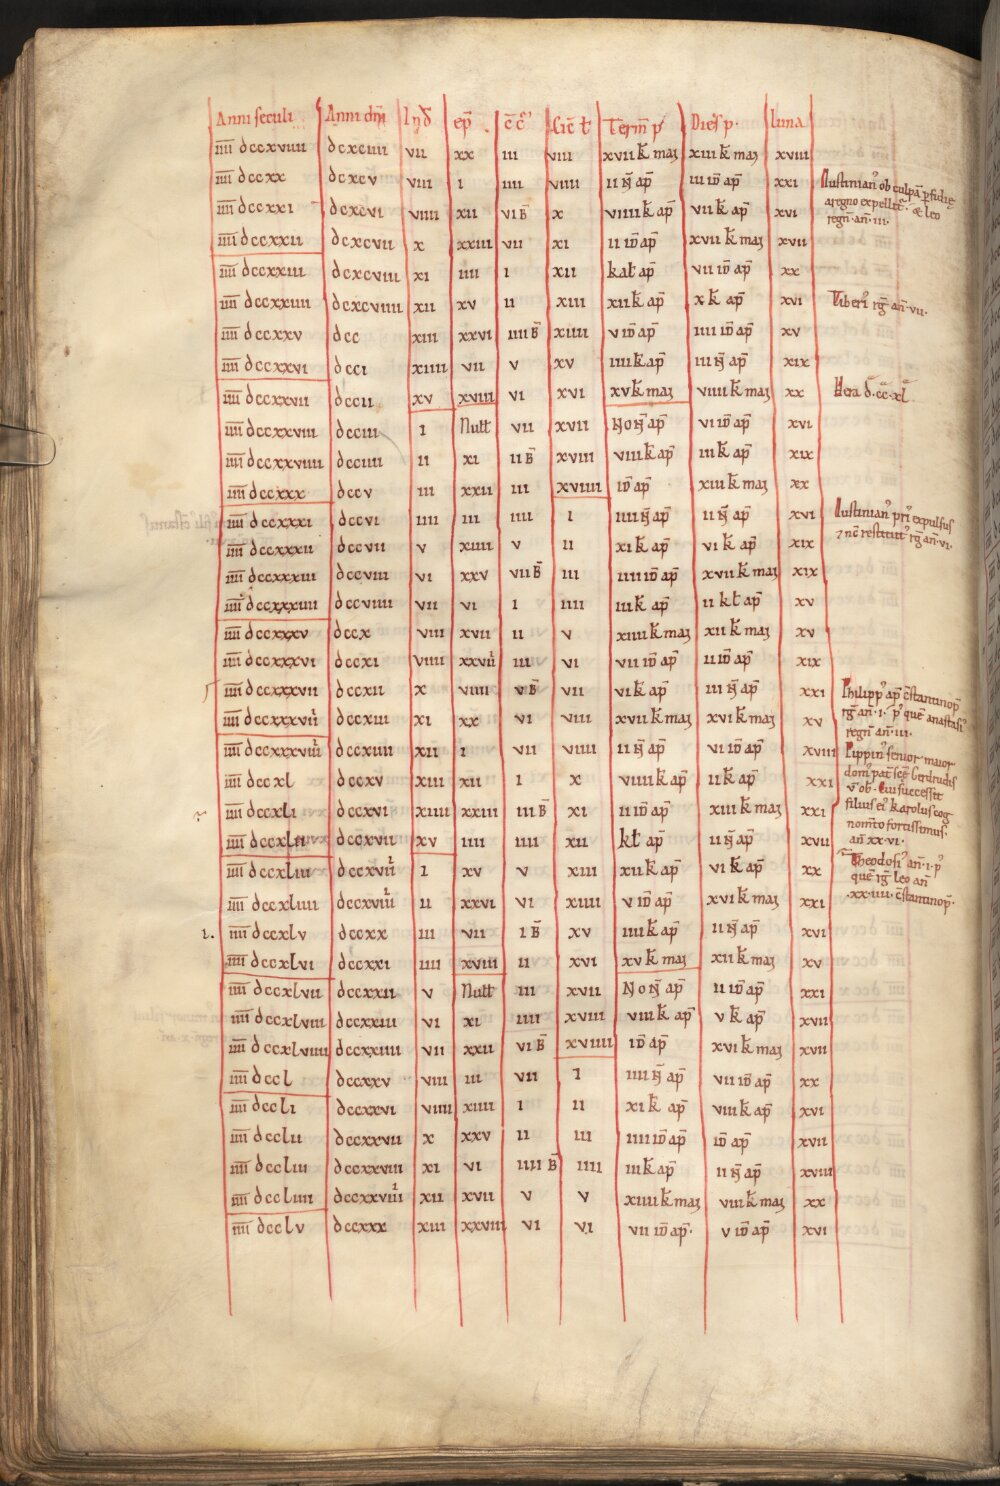 Anni seculi Anni dnī Ind̄ ep̄ c̄c̄ł cic̄ ł Term̄ p̄ Dies p̄. luna
īīīī dccxviiii dcxciiii vii xx iii viii xvii k̄ maȝ xiii k̄ maȝ xviii
īīīī dccxx dcxcv viii i iiii viiii ii n̄ ap̄ iii id̄ ap̄ xxi Iustinianꝰ ob culpā pfidię
īīīī dccxxi dcxcvi viiii xii vi B̄ x viiii k̄ ap̄ vii k̄ ap̄ xvi aregno expellit̄. & leo
regn̄ an̄ iii.
īīīī dccxxii dcxcvii x xxiii vii xi ii id̄ ap̄ xvii k̄ maȝ xvii
īīīī dccxxiii dcxcviii xi iiii i xii kał ap̄ vii id̄ ap̄ xx
īīīī dccxxiiii dcxcviiii xii xv ii xiii xii k̄ ap̄ x k̄ ap̄ xvi Tiberiꝰ rḡ an̄ vii.
īīīī dccxxv dcc xiii xxvi iiii B̄ xiiii v id̄ ap̄ iiii id̄ ap̄ xv
īīīī dccxxvi dcci xiiii vii v xv iiii k̄ ap̄ iii n̄ ap̄ xix
īīīī dccxxvii dccii xv xviii vi xvi xv k̄ maȝ viiii k̄ maȝ xx Hera d̄.cc̄.xl̄.
īīīī dccxxviii dcciii i Nułł vii xvii Non̄ ap̄ vi id̄ ap̄ xvi
īīīī dccxxviiii dcciiii ii xi ii B̄ xviii viii k̄ ap̄ iii k̄ ap̄ xix
īīīī dccxxx dccv iii xxii iii xviiii id̄ ap̄ xiii k̄ maȝ xx
īīīī dccxxxi dccvi iiii iii iiii i iiii n̄ ap̄ ii n̄ ap̄ xvi Iustinianꝰ priꝰ expulsus
īīīī dccxxxii dccvii v xiiii v ii xi k̄ ap̄ vi k̄ ap̄ xix ⁊ nc̄ restitutꝰ rḡ an̄. vi.
īīīī dccxxxiii dccviii vi xxv vii B̄ iii iiii id̄ ap̄ xvii k̄ maȝ xix
īīīī dccxxxiiii dccviiii vii vi i iiii iii k̄ ap̄ ii kł ap̄ xv
īīīī dccxxxv dccx viii xvii ii v xiiii k̄ maȝ xii k̄ maȝ xv
īīīī dccxxxvi dccxi viiii xxviii iii vi vii id̄ ap̄ ii id̄ ap̄ xix
īīīī dccxxxvii dccxii x viiii v B̄ vii vi k̄ ap̄ iii n̄ ap̄ xxi Philippꝰ ap̄ c̄stantinop̄
īīīī dccxxxviii dccxiii xi xx vi viii xvii k̄ maȝ xvi k̄ maȝ xv rḡ an̄.i. pꝰ quē anastasiꝰ
regn̄ an̄.iii.
īīīī dccxxxviiii dccxiiii xii i vii viiii ii n̄ ap̄ vi id̄ ap̄ xviii Pippinꝰ senior maior
īīīī dccxl dccxv xiii xii i x viiii k̄ ap̄ ii k̄ ap̄ xxi domꝰ pat̄ sc̄ę Gerdrudis
v̄ ob. Cui successit
īīīī dccxli dccxvi xiiii xxiii iii B̄ xi ii id̄ ap̄ xiii k̄ maȝ xxi filius eiꝰ karolus cog
nom̄to fortissimus.
īīīī dccxlii dccxvii xv iiii iiii xii kł ap̄ ii n̄ ap̄ xvii an̄ xx.vi.
īīīī dccxliii dccxviii i xv v xiii xii k̄ ap̄ vi k̄ ap̄ xx Theodosiꝰ an̄.i.pꝰ
quē rḡ leo an̄
īīīī dccxliiii dccxviiii ii xxvi vi xiiii v id̄ ap̄ xvi k̄ maȝ xxi .xx.iiii. c̄stantinop̄.
i. īīīī dccxlv dccxx iii vii i B̄ xv iiii k̄ ap̄ ii n̄ ap̄ xvi
īīīī dccxlvi dccxxi iiii xviii ii xvi xv k̄ maȝ xii k̄ maȝ xv
īīīī dccxlvii dccxxii v Nułł iii xvii Non̄ ap̄ ii id̄ ap̄ xxi
īīīī dccxlviii dccxxiii vi xi iiii xviii viii k̄ ap̄ v k̄ ap̄ xvii
īīīī dccxlviiii dccxxiiii vii xxii vi B̄ xviiii id̄ ap̄ xvi k̄ maȝ xvii
īīīī dccl dccxxv viii iii vii i iiii n̄ ap̄ vii id̄ ap̄ xx
īīīī dccli dccxxvi viiii xiiii i ii xi k̄ ap̄ viii k̄ ap̄ xvi
īīīī dcclii dccxxvii x xxv ii iii iiii id̄ ap̄ id̄ ap̄ xvii
īīīī dccliii dccxxviii xi vi iiii B̄ iiii iii k̄ ap̄ ii n̄ ap̄ xviii
īīīī dccliiii dccxxviiii xii xvii v v xiiii k̄ maȝ viii k̄ maȝ xx
īīīī dcclv dccxxx xiii xxviii vi vi vii id̄ ap̄. v id̄ ap̄ xvi